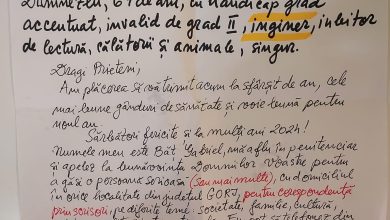 Dumnezeu, 64 de ani, cu handicap grad
accentuat, invalid de grad II, inginer, iubitor
de lectură, călătorii și animale, singur.
Dragi Prieteni,
Am plăcerea să vă transmit acum la sfârșit de an, cele
mai bune gânduri de sănătate și voie bună pentru
noul an.
Sărbători fericite și la mulți ani 2024!
Numele meu este Băt Gabriel, mă aflu în penitenciar
și apelez la bunăvoința Domniilor Voastre pentru
a găsi o persoană serioasă (sau mai multe), cu domiciliul
în orice localitate din județul GORJ, pentru corespondență
prin scrisori, pe diferite teme: societate, familie, cultură,